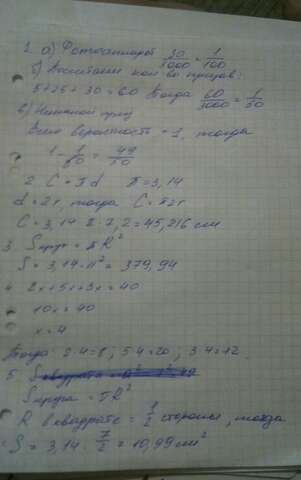 1. а) Фотоаппарат 30/3000 = 1/100
б) Посчитаем кол во призов:
5+25+30=60 Тогда 60/3000 = 1/50
в) призу
вероятность = 1, тогда
1 - 1/50 = 49/50
2. C = πd π=3,14
d=2r, тогда C=π2r
C=3,14·2·7,2=45,216 см
3. Sкруг = πR²
S=3,14·11²=379,94
4. 2x+5x+3x=40
10x=40
x=4
Тогда 2·4=8; 5·4=20; 3·4=12
5.
Sкруга = πR²
R в квадрате = 1/2 стороны, тогда
S = 3,14 · 7/2 = 10,99 см²